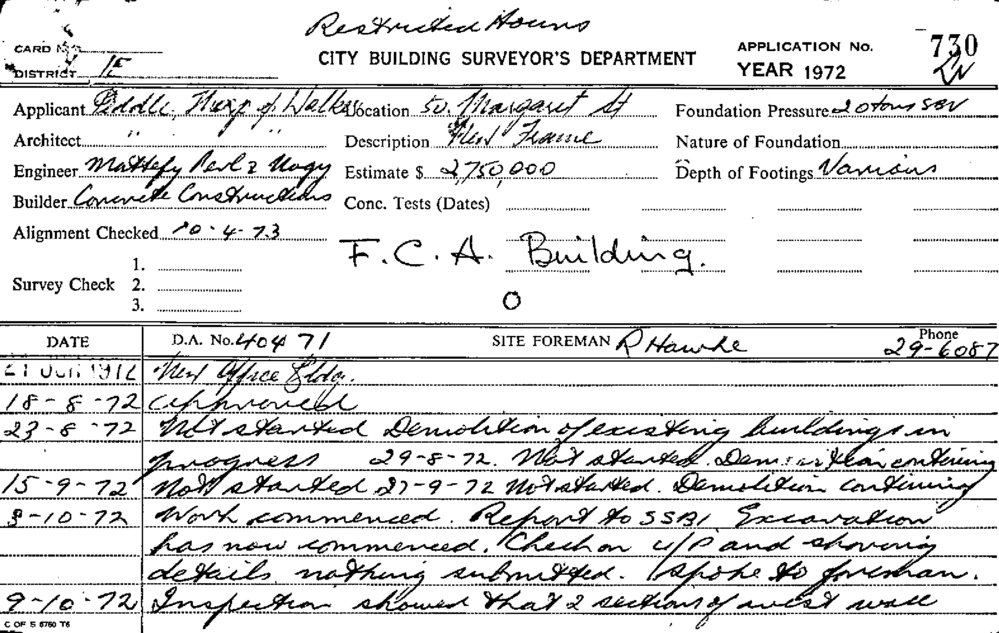 Restricted Hours
CARD No.
CITY BUILDING SURVEYOR'S DEPARTMENT
APPLICATION No. 730
DISTRICT 1E
YEAR 1972
Applicant Peddle, Thorp & Walker Location 50 Margaret St Foundation Pressure 20 tons
Architect " " Description New Frame Nature of Foundation
Engineer Mattefy Perl & Nagy Estimate $ 2,750,000 Depth of Footings Various
Builder Concrete Constructions Conc. Tests (Dates)
Alignment Checked 10-4-73
F.C.A. Building.
1.
Survey Check 2.
3.
DATE D.A. No. 404 71 SITE FOREMAN R Hawke Phone 29-6087
21 JUN 1972 New Office Bldg.
18-8-72 approved
23-8-72 Not started Demolition of existing buildings in
progress 29-8-72. Not started. Demolition continuing
15-9-72 Not started 27-9-72 Not started. Demolition continuing
3-10-72 Work commenced. Report to SSBI. Excavation
has now commenced. Check on u/p and shoring
details nothing submitted. I spoke to foreman.
9-10-72 Inspection showed that 2 sections of west wall
C OF S 6750 T6